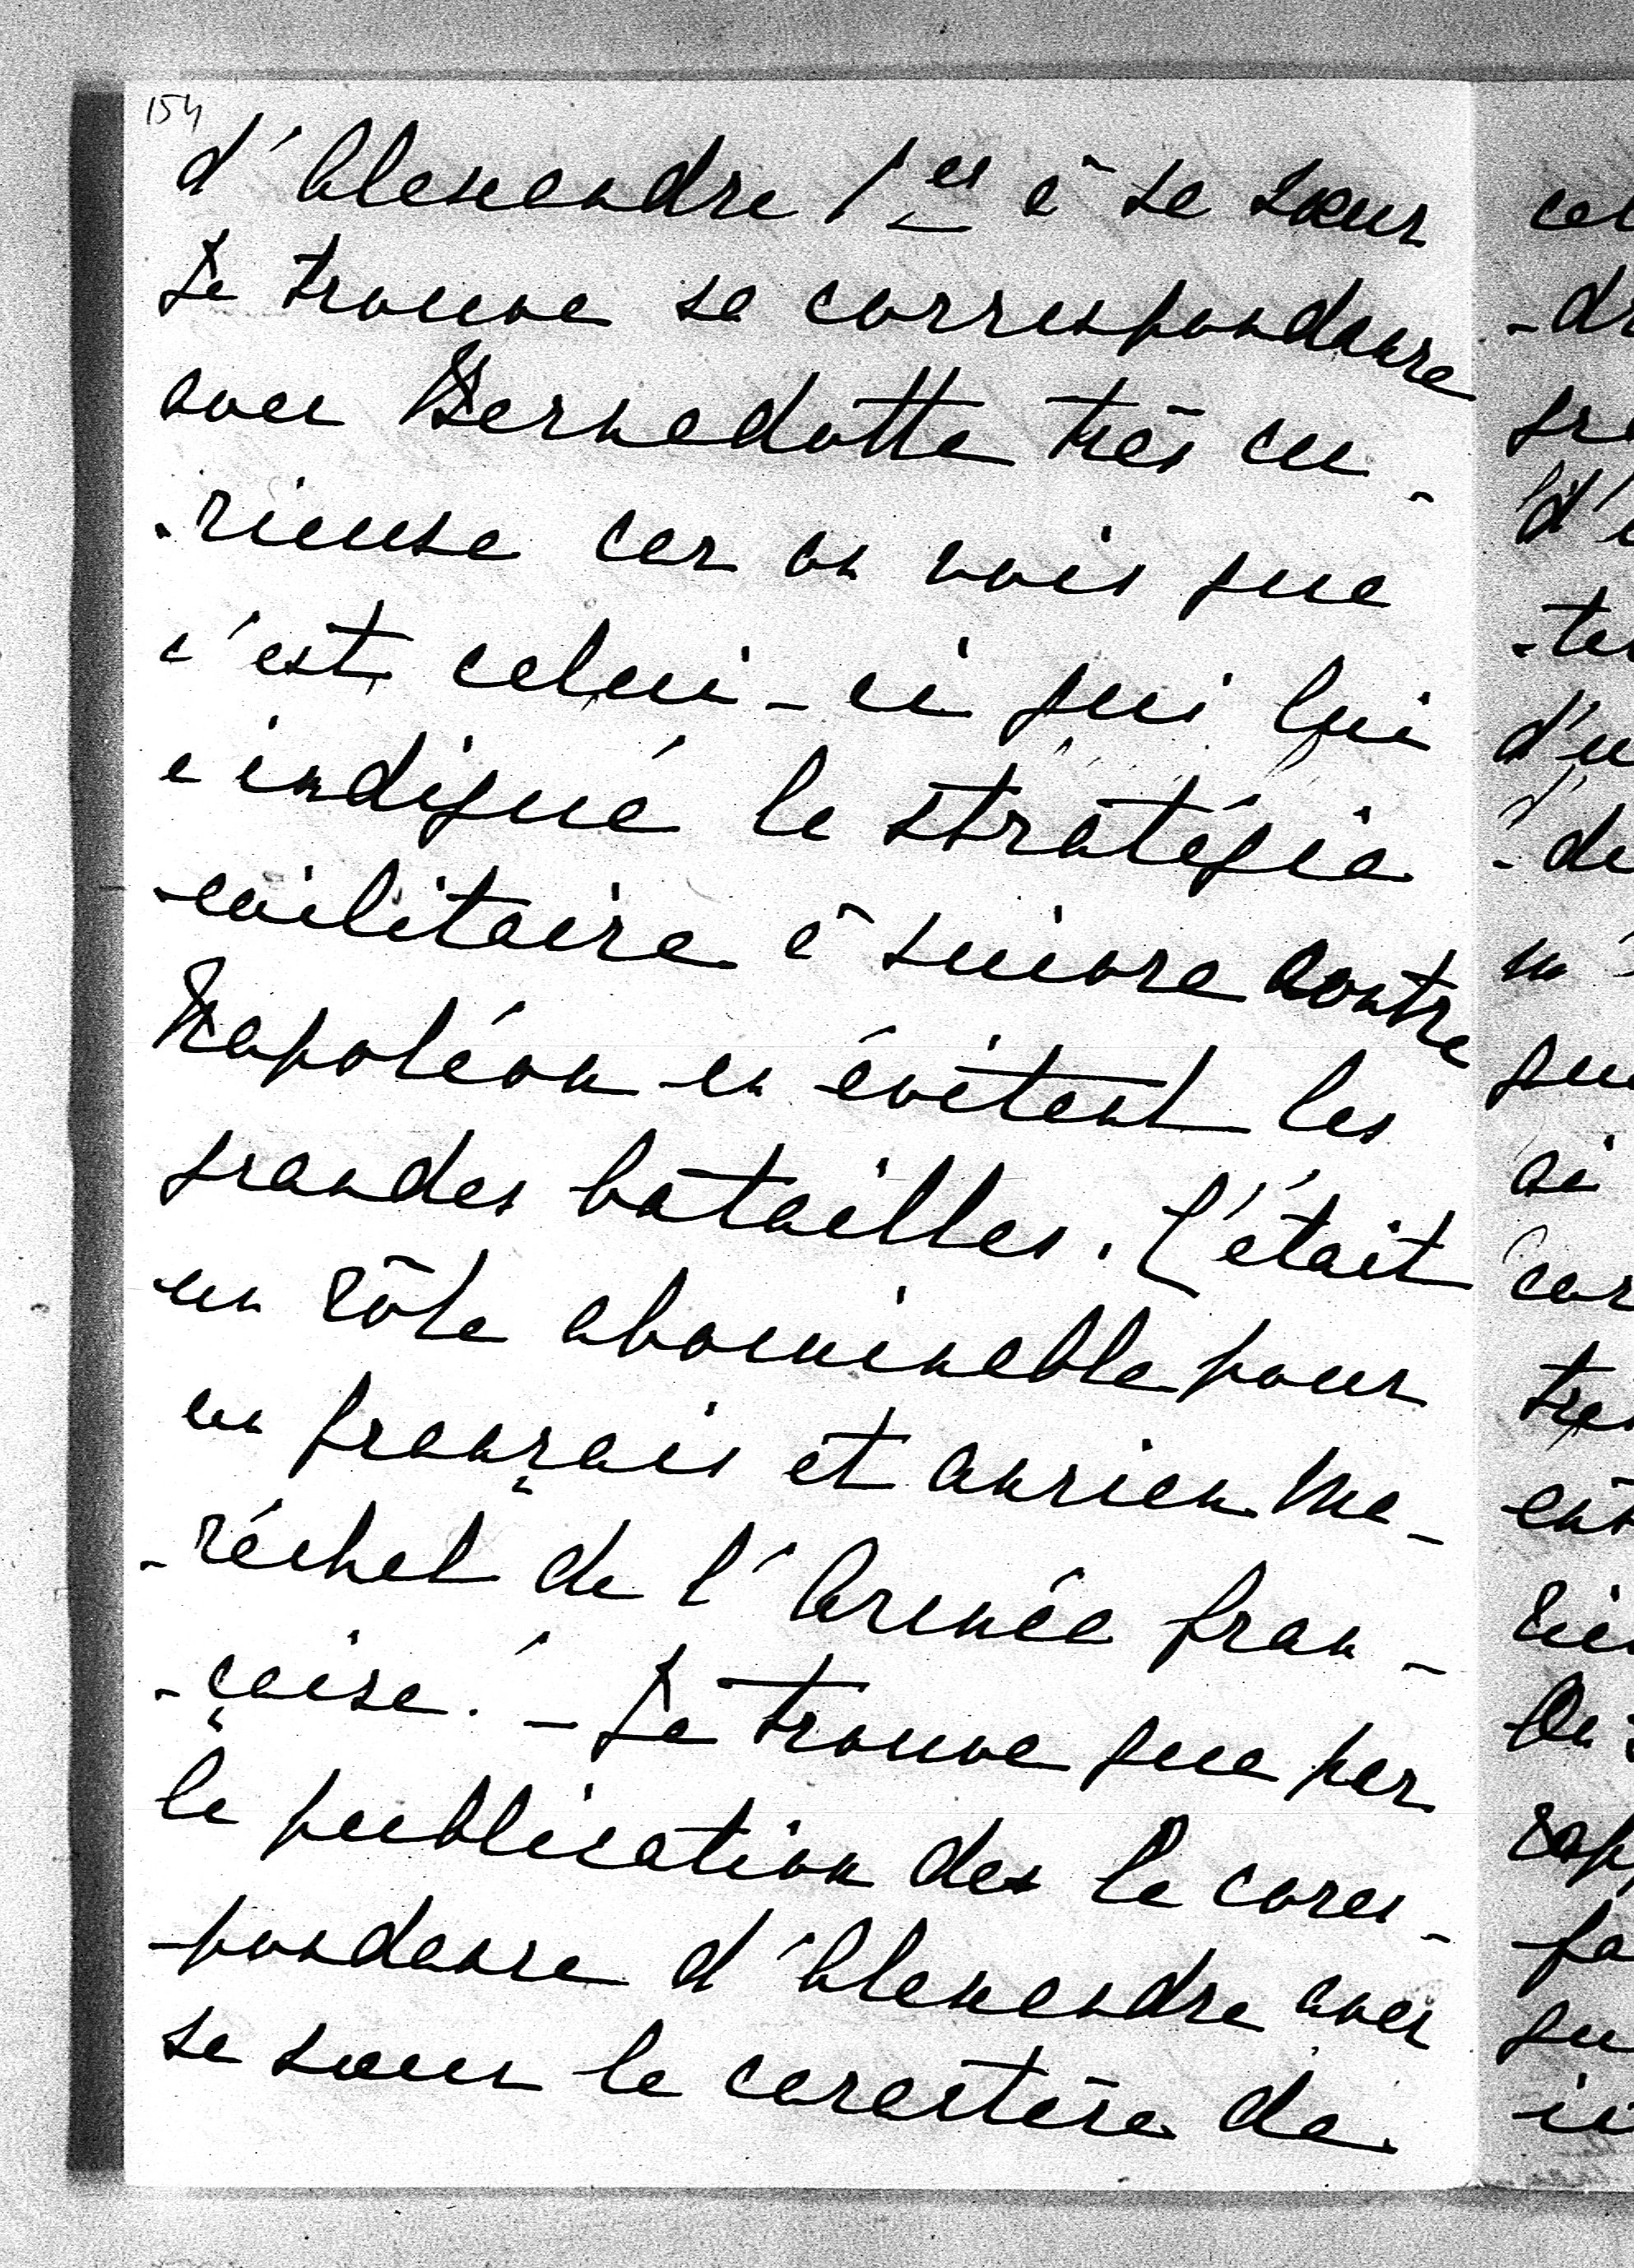 154
d'Alexandre 1er à sa sœur
Je trouve sa correspondance
avec Bernadotte très cu-
-rieuse car on vois que
c'est celui-ci qui lui
a indiqué la stratégie
militaire à suivre contre
Napoléon en évitant les
grandes batailles. C'était
un rôle abominable pour
un français et ancien Ma-
-réchal de l'Armée fran-
-çaise! - Je trouve que par
la publication des la cores-
-pondance d'Alexandre avec
sa sœur le caractère de